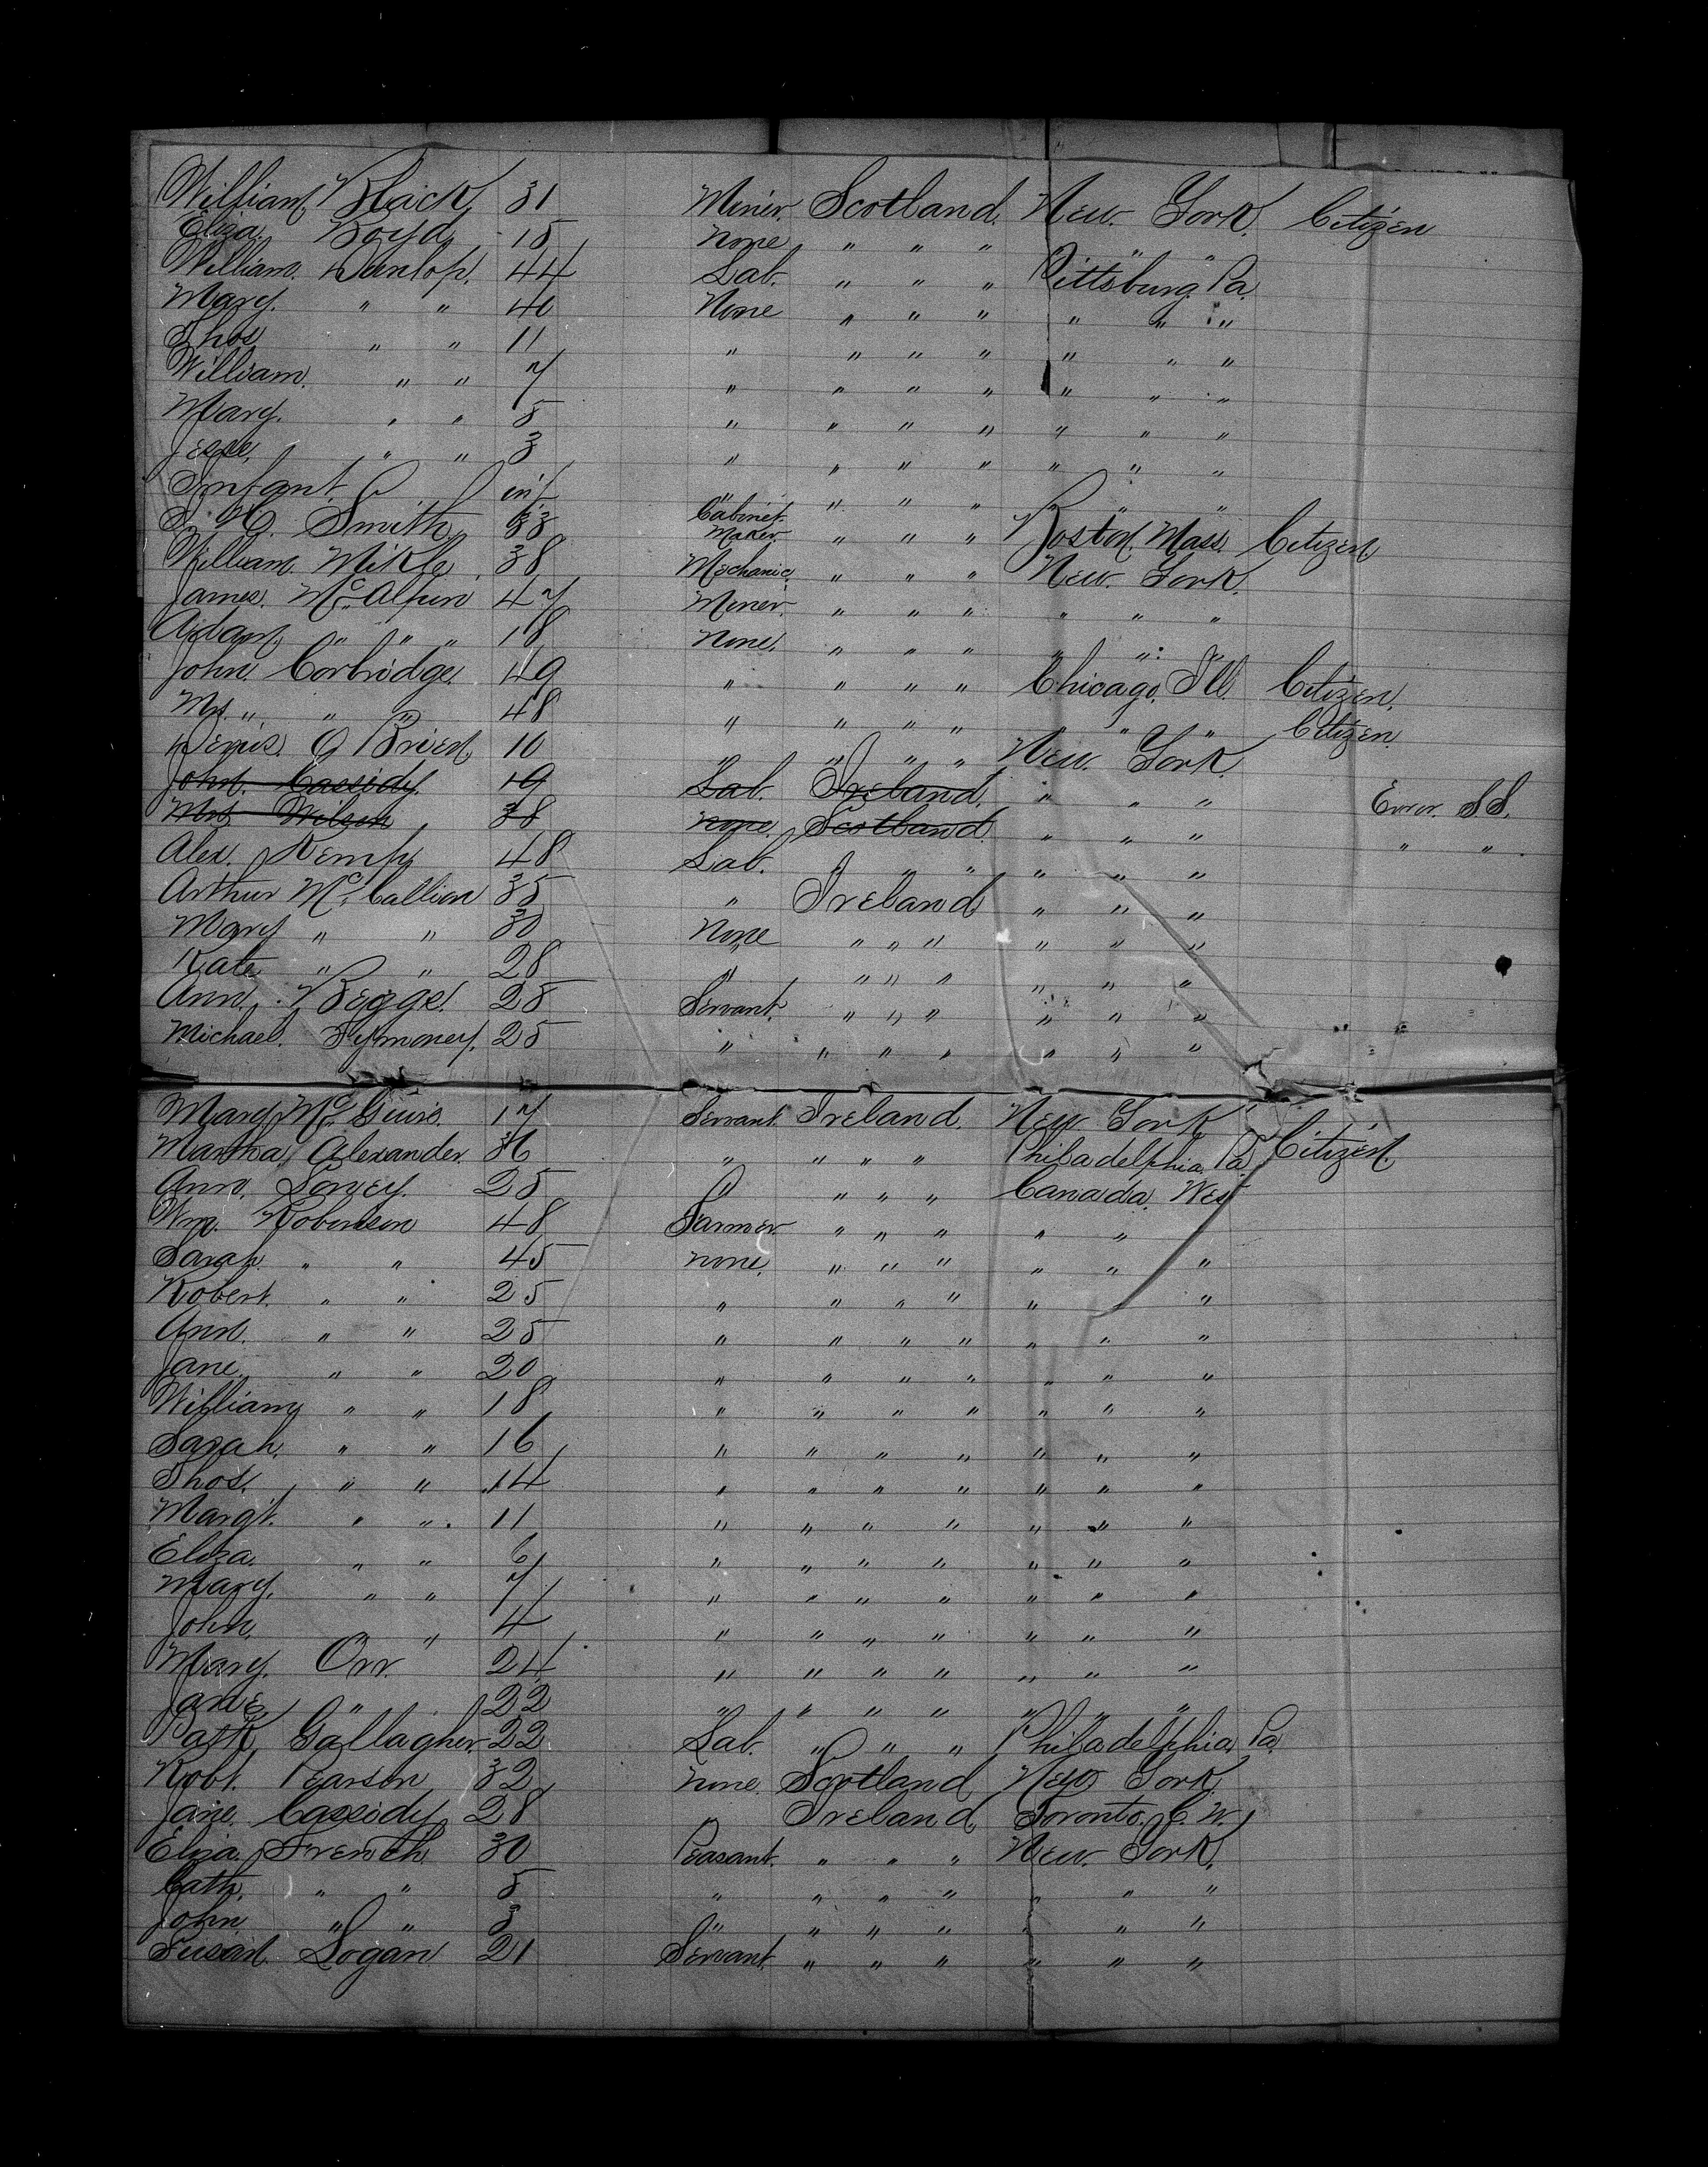 William Black 31 Miner Scotland New York Citizen
Eliza Boyd 15 None " " " " "
William Dunlop 44 Lab. " " " Pittsburg Pa
Mary " " 40 None " " " " " "
Thos " " 11 " " " " " " "
William " " 7 " " " " " " "
Mary " " 5 " " " " " " "
Jesse " " 3 " " " " " " "
Infant inf " " " " " "
Smith 33 Cabinet Maker " " " Boston Mass. Citizen
William Mikle 38 Mechanic " " " New York
James McAlpin 47 Miner " " " " " "
Adam " " " 18 None. " " " " " "
John Corbridge 49 " " " " Chicago Ill Citizen.
Mrs. " " " 48 " " " " " " " Citizen
Denis O Brien 10 " " " " New York
John Cassidy 19 Lab. Ireland " " " Error. S S.
Mrs Wilson 38 None Scotland " " " " "
Alex. Kemp 48 Lab. " " " " " "
Arthur McCallion 35 " Ireland " " "
Mary " " 30 None " " " " " "
Kate " " 28 " " " " " " "
Ann Beggs 25 Servant " " " " " "
Michael Fymoney 25 " " " " " " "
Mary McGuire 17 Servant Ireland New York
Martha Alexander 36 " " " " Philadelphia Pa Citizen.
Ann. Loney. 25 " " " " Canada West
Wm. Robinson 48 Farmer " " " " "
Sarah " " 45 none " " " " " "
Robert " " 25 " " " " " "
Ann. " " 25 " " " " " " "
Jane. " " 20 " " " " " " "
William " " 18 " " " " " " "
Sarah. " " 16 " " " " " " "
Thos. " " 14 " " " " " " "
Margt. " " 11 " " " " " " "
Eliza. " " 6 " " " " " " "
Mary. " " 7 " " " " " " "
John. " " 4 " " " " " " "
Mary. Orr. 24 " " " " " " "
Jane " 22 " " " " " " "
Patk Gallagher 22 Lab. " " " Philadelphia Pa
Robt. Pearson 32 none Scotland New York
Jane Cassidy 28 Ireland Toronto. C. W.
Eliza French 30 Peasant. " " " New York.
Cath. " " 5 " " " " " " "
John " " 3 " " " " " " "
Susan Logan 21 Servant " " " " " "